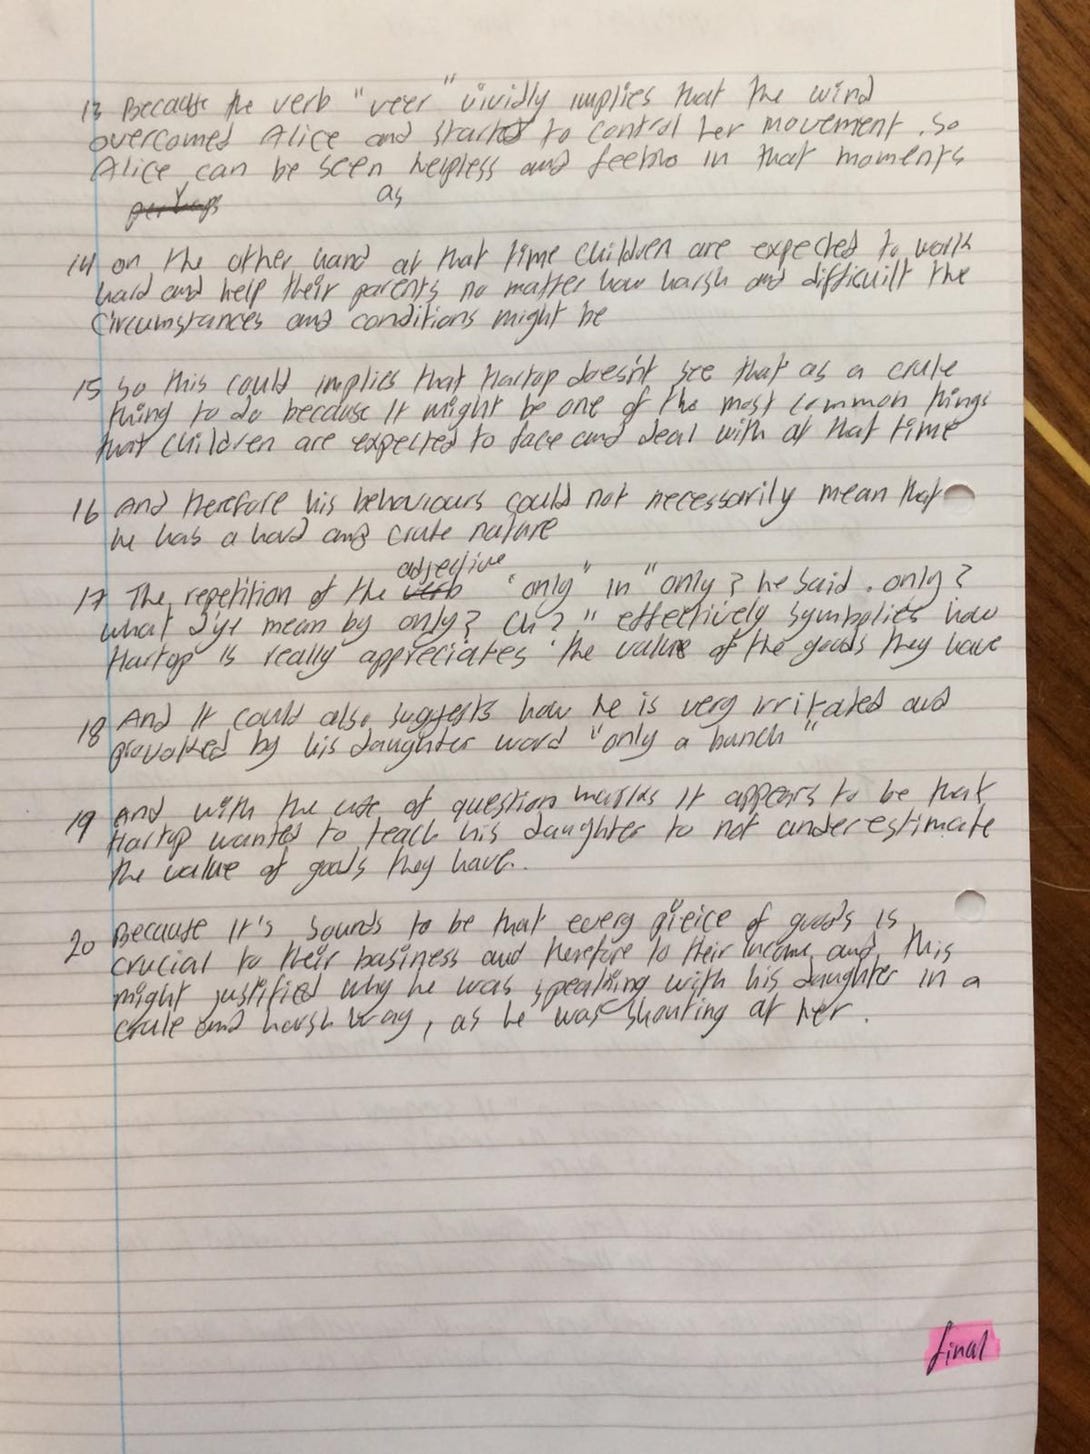 13 Because the verb "veer" vividly implies that the wind
overcomed Alice and started to control her movement. So
Alice can be seen helpless and feeble in that moments
perhaps as
14 on the other hand at that time children are expected to work
hard and help their parents no matter how harsh and difficuilt the
circumstances and conditions might be
15 So this could implies that Hartop doesn't see that as a crule
thing to do because It might be one of the most common things
that children are expected to face and deal with at that time
16 And therefore his behaviours could not necessarily mean that
he has a hard and crule nature
adjective
17 The repetition of the verb "only" in "only? he said. only?
what d'ye mean by only? Eh?" effectively symbolies how
Hartop is really appreciates the value of the goods they have
18 And It could also suggests how he is very irritated and
provoked by his daughter word "only a bunch"
19 And with the use of question marks It appears to be that
Hartop wanted to teach his daughter to not underestimate
the value of goods they have.
20 Because It's sounds to be that every pieice of goods is
crucial to their business and therefore to their income and this
might justified why he was speaking with his daughter in a
crule and harsh way, as he was shouting at her.
final